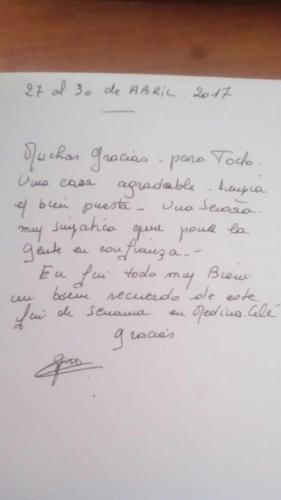 27 al 30 de ABRIL. 2017
Muchas gracias. para Todo.
Una casa agradable. limpia
y bien puesta - una Senõra.
muy simpatica que pone la
gente en confianza. -
En fin todo muy Bien
un buen recuerdo de este
fin de Semana en Medina. Celi
gracias